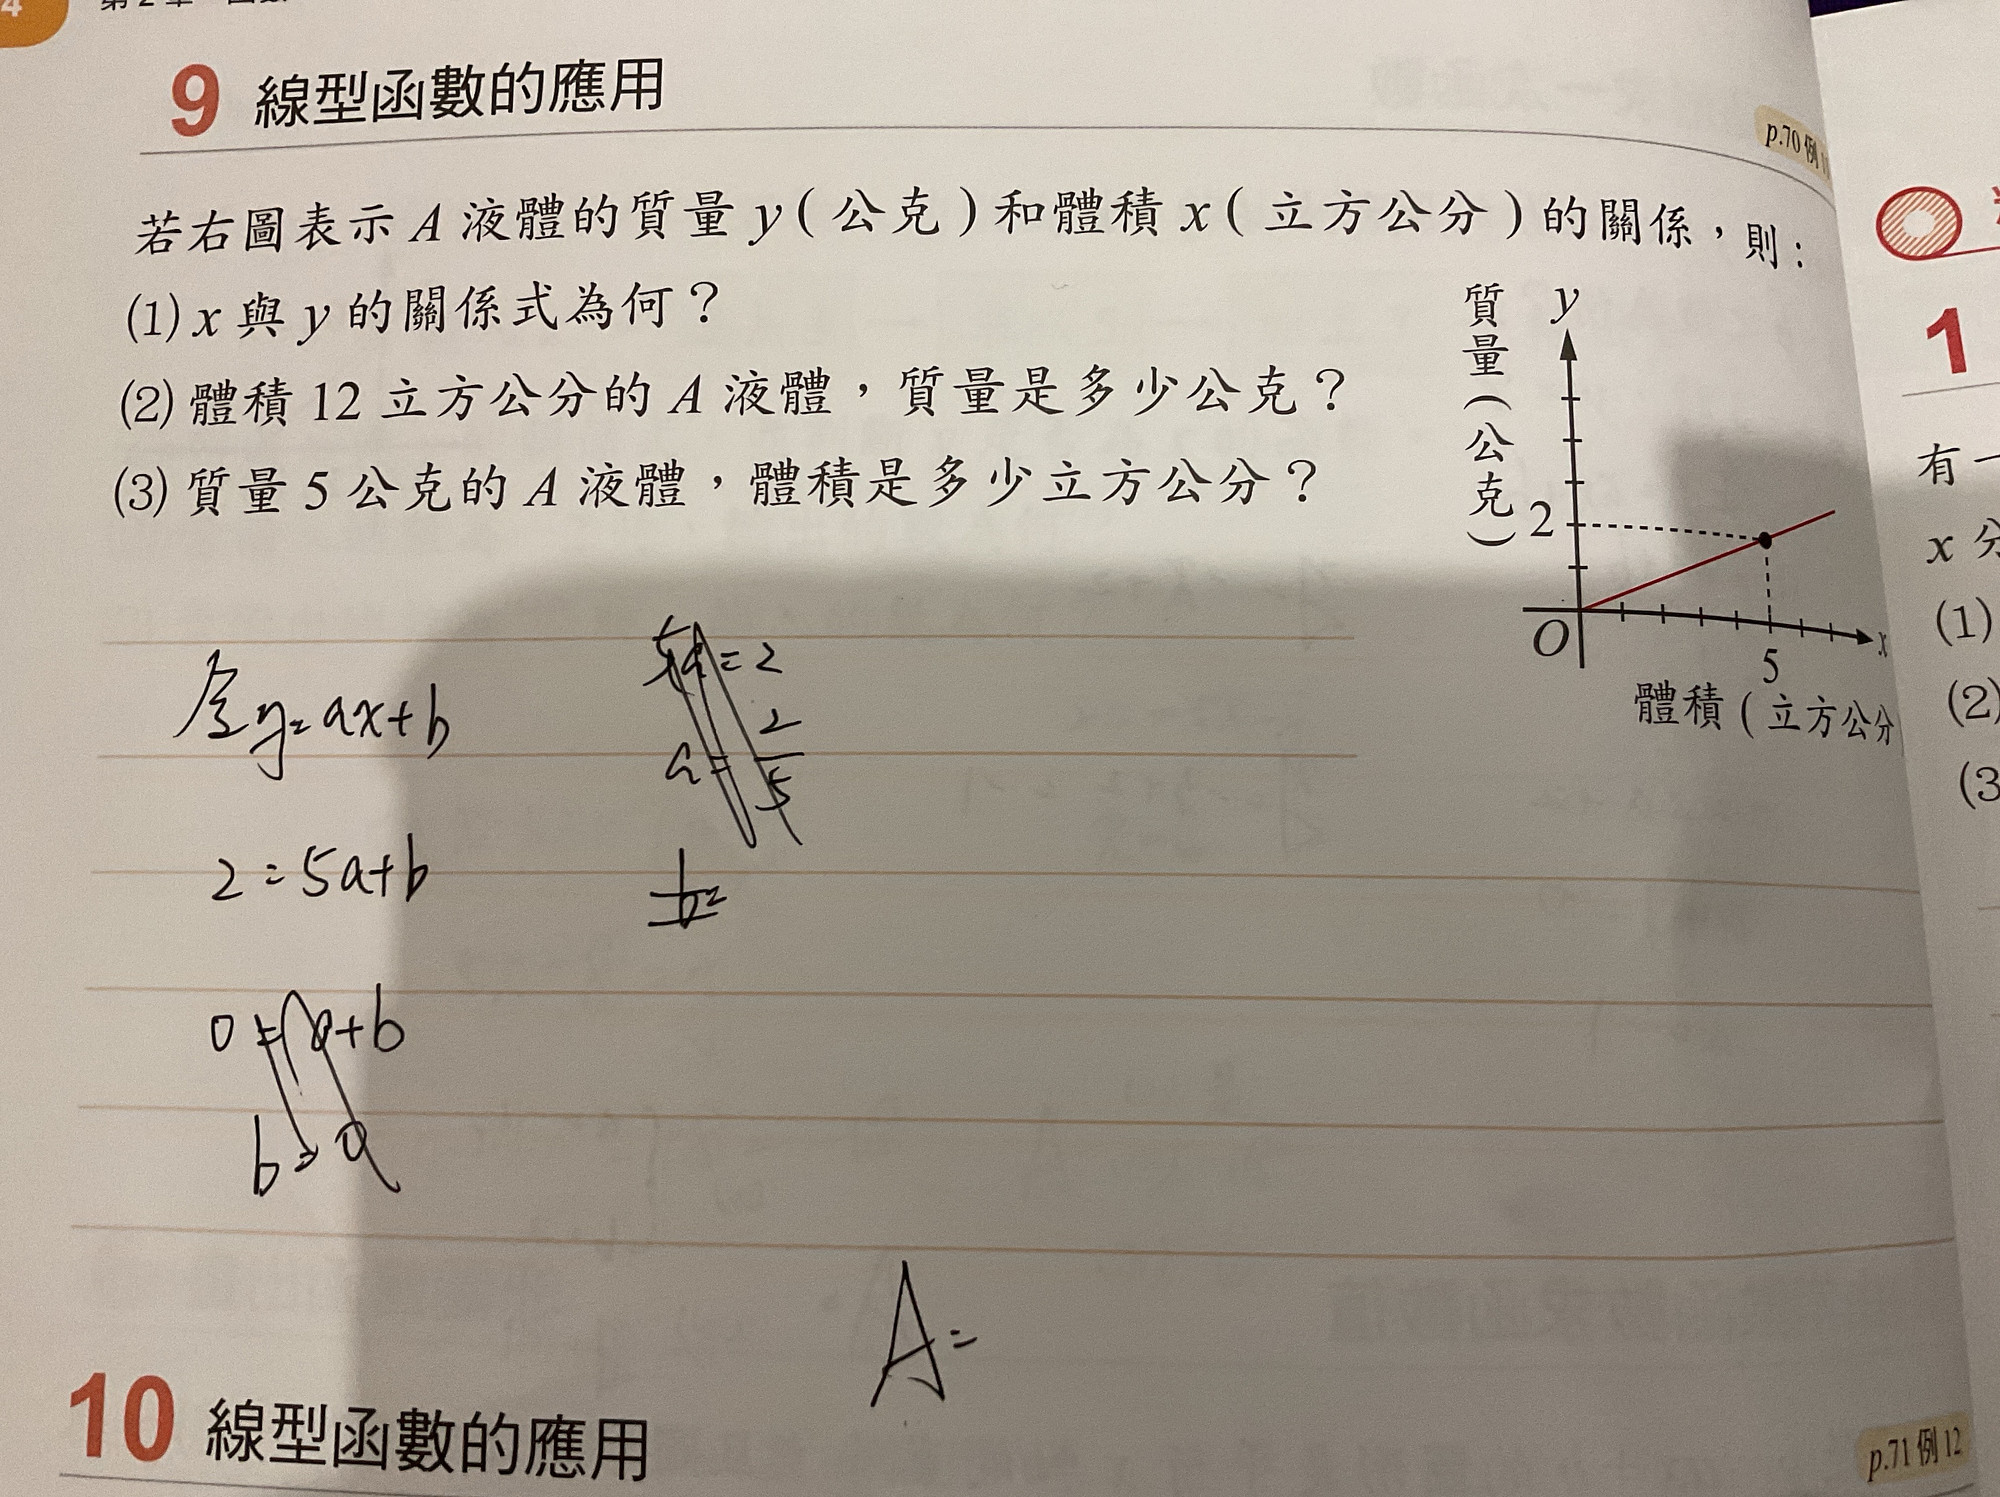 4
第2章 函數
9 線型函數的應用
p.70 例
若右圖表示 A 液體的質量 y(公克)和體積 x(立方公分)的關係,則:
(1) x 與 y 的關係式為何?
(2) 體積 12 立方公分的 A 液體,質量是多少公克?
(3) 質量 5 公克的 A 液體,體積是多少立方公分?
質量(公克)
y
2
O
5
x
體積(立方公分
令y=ax+b
5a=2
a=2/5
2=5a+b
b=
0=a+b
b=0
A=
10 線型函數的應用
p.71 例 12
1
有一
x 分
(1)
(2)
(3